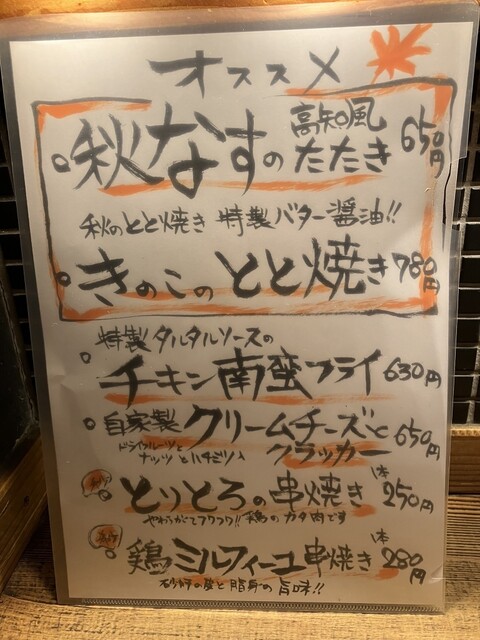 オススメ
秋なすの高知風たたき 650円
秋のとと焼き 特製バター醤油!!
きのこのとと焼き 780円
特製タルタルソースの
チキン南蛮フライ 630円
自家製クリームチーズとクラッカー 650円
ドライフルーツと
ナッツとハチミツ入
とりとろの串焼き 1本 250円
やわらかくてフワフワ!!鶏のカタ肉です
鶏ミルフィーユ串焼き 1本 280円
砂肝の皮と脂身の旨味!!